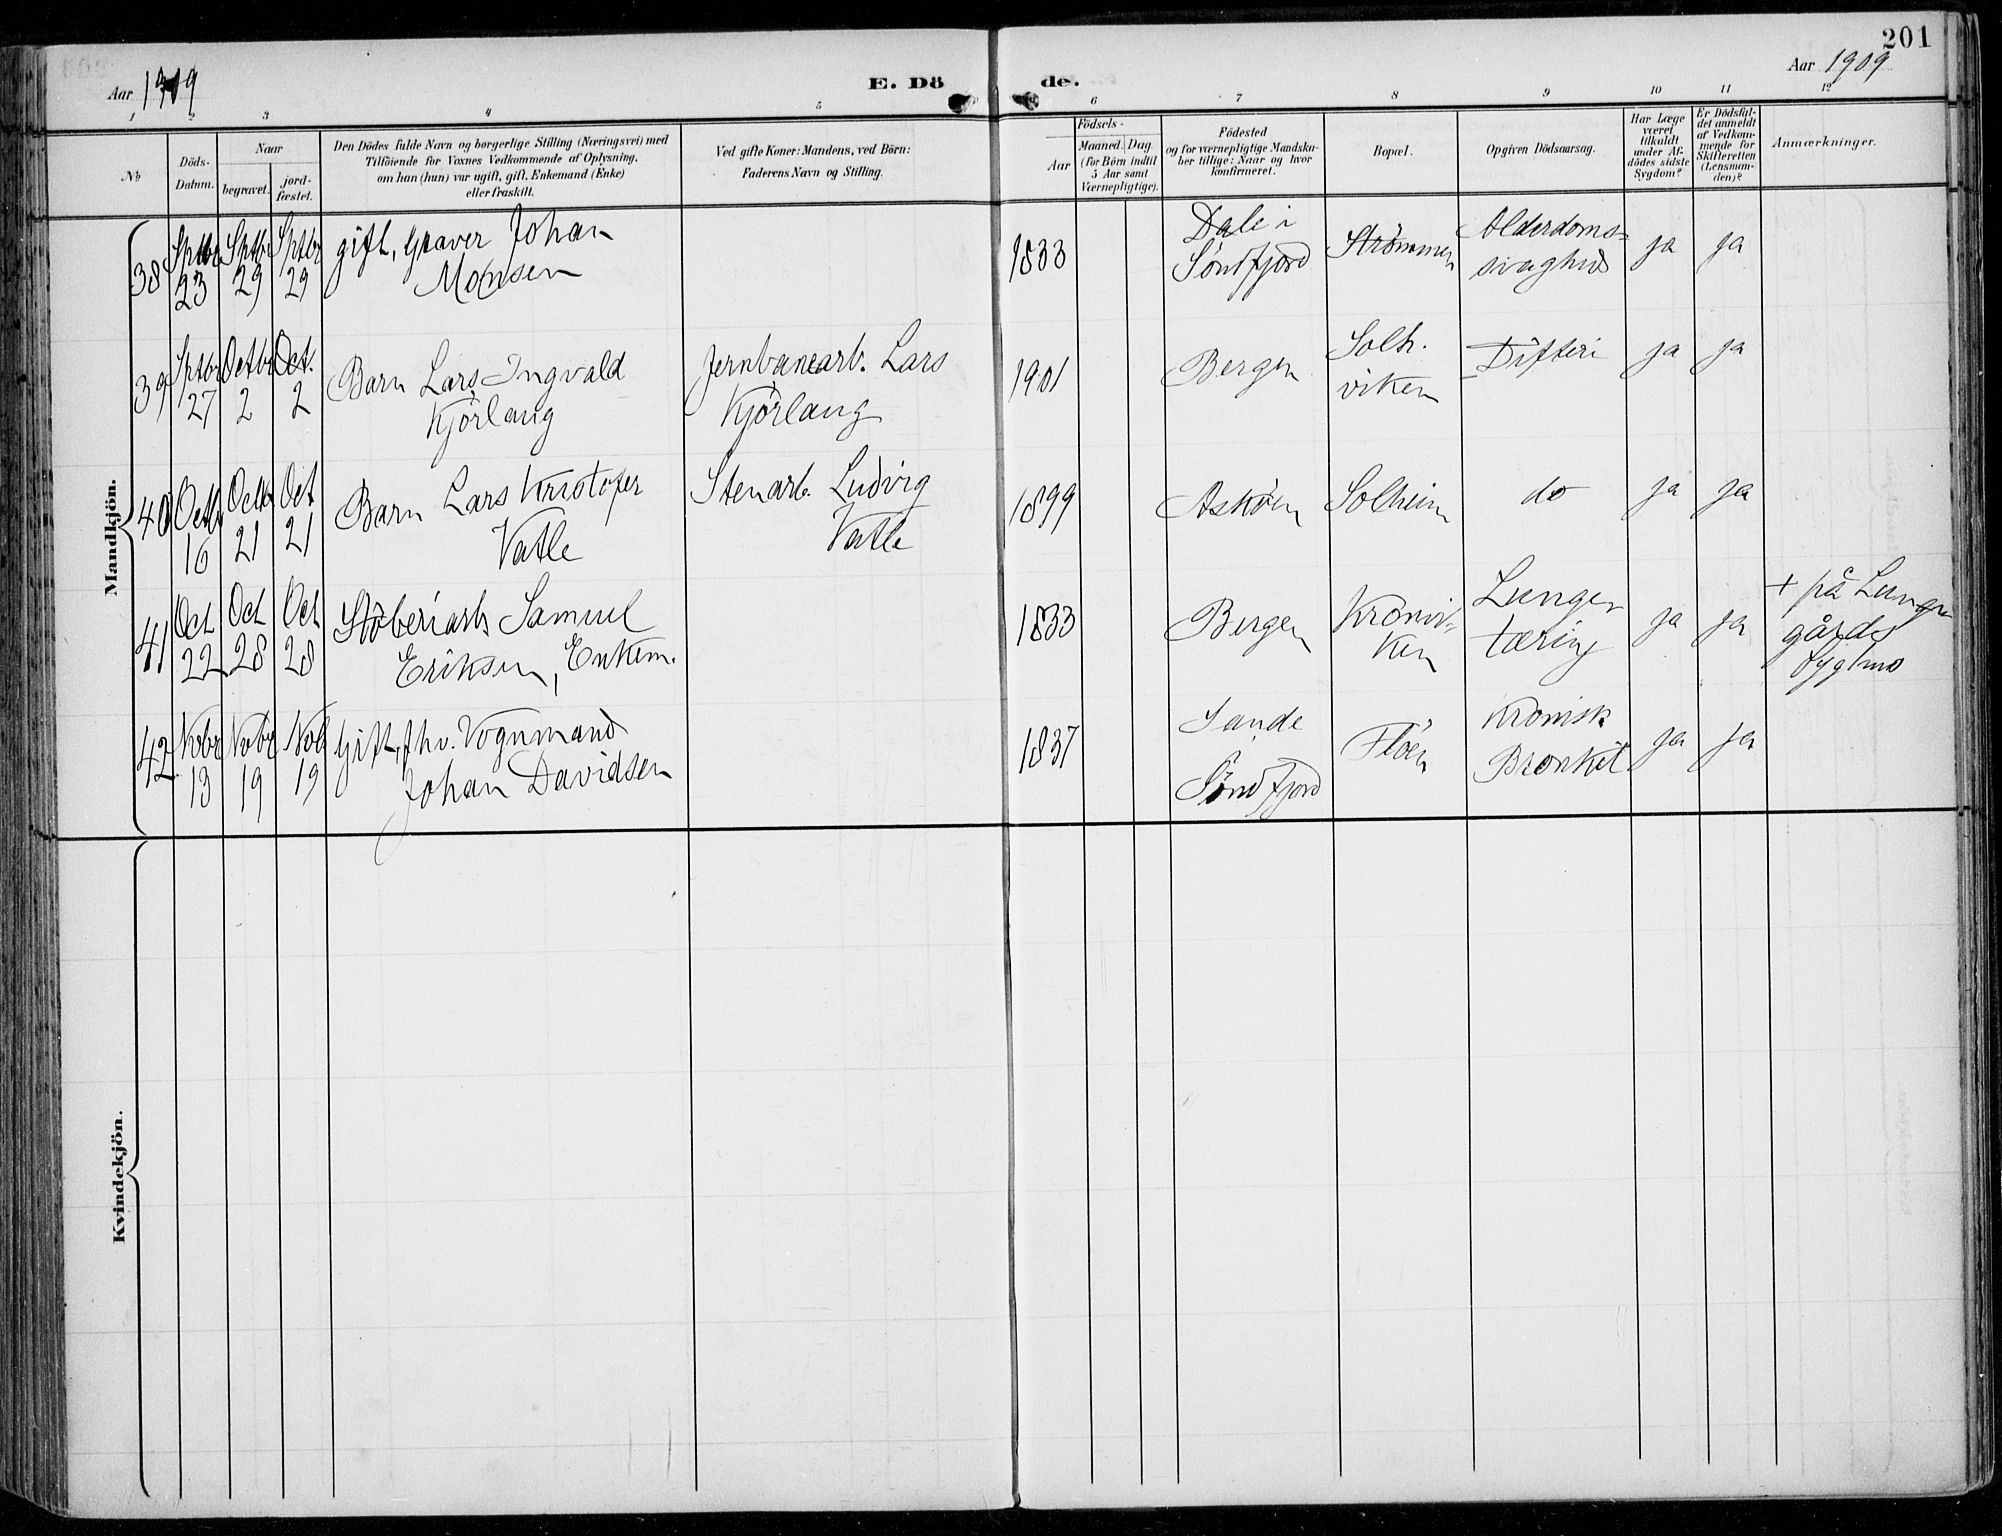 201
Aar 1909 E. Dö de. Aar 1909
1 2 3 4 5 6 7 8 9 10 11 12
No
Döds-
Datum.
Naar
begravet.
jord-
fæstet.
Den Dödes fulde Navn og borgerlige Stilling (Næringsvei) med
Tilföiende for Voxnes Vedkommende af Oplysning,
om han (hun) var ugift, gift, Enkemand (Enke)
eller fraskilt.
Ved gifte Koner: Mandens, ved Börn:
Faderens Navn og Stilling.
Födsels-
Aar
Maaned. Dag
(for Börn indtil
5 Aar samt
Værnepligtige).
Födested
og for værnepligtige Mandska-
ber tillige: Naar og hvor
konfirmeret.
Bopæl.
Opgiven Dödsaarsag.
Har Læge
været
tilkaldt
under Af-
dödes sidste
Sygdom?
Er Dödsfal-
det anmeldt
af Vedkom-
mende for
Skifteretten
(Lensman-
den)?
Anmærkninger.
Mandkjön.
38
Sptbr
23
Sptbr
29
Sptbr
29
gift, Graver Johan
Monsen
1833
Dale i
Söndfjord
Strömmen
Alderdoms-
svaghed
ja
ja
39
Sptbr
27
Octbr
2
Oct.
2
Barn Lars Ingvald
Kjörlaug
Jernbanearb. Lars
Kjörlaug
1901
Bergen
Solh.
viken
Difteri
ja
ja
40
Octb
16
Octb
21
Oct
21
Barn Lars Kristofer
Vatle
Stenarb. Ludvig
Vatle
1899
Asköen
Solheim
do
ja
ja
41
Oct
22
Oct
28
Oct
28
Stöberiarb. Samuel
Eriksen, Enkem.
1833
Bergen
Kronvi-
ken
Lunge
tæring
ja
ja
+ på Lunge
gårds
sygehus
42
Nvbr
13
Nvbr
19
Nvb
19
Gift, fhv. Vognmand
Johan Davidsen
1837
Sande
Söndfjord
Flöen
Kronisk
Bronkit
ja
ja
Kvindekjön.